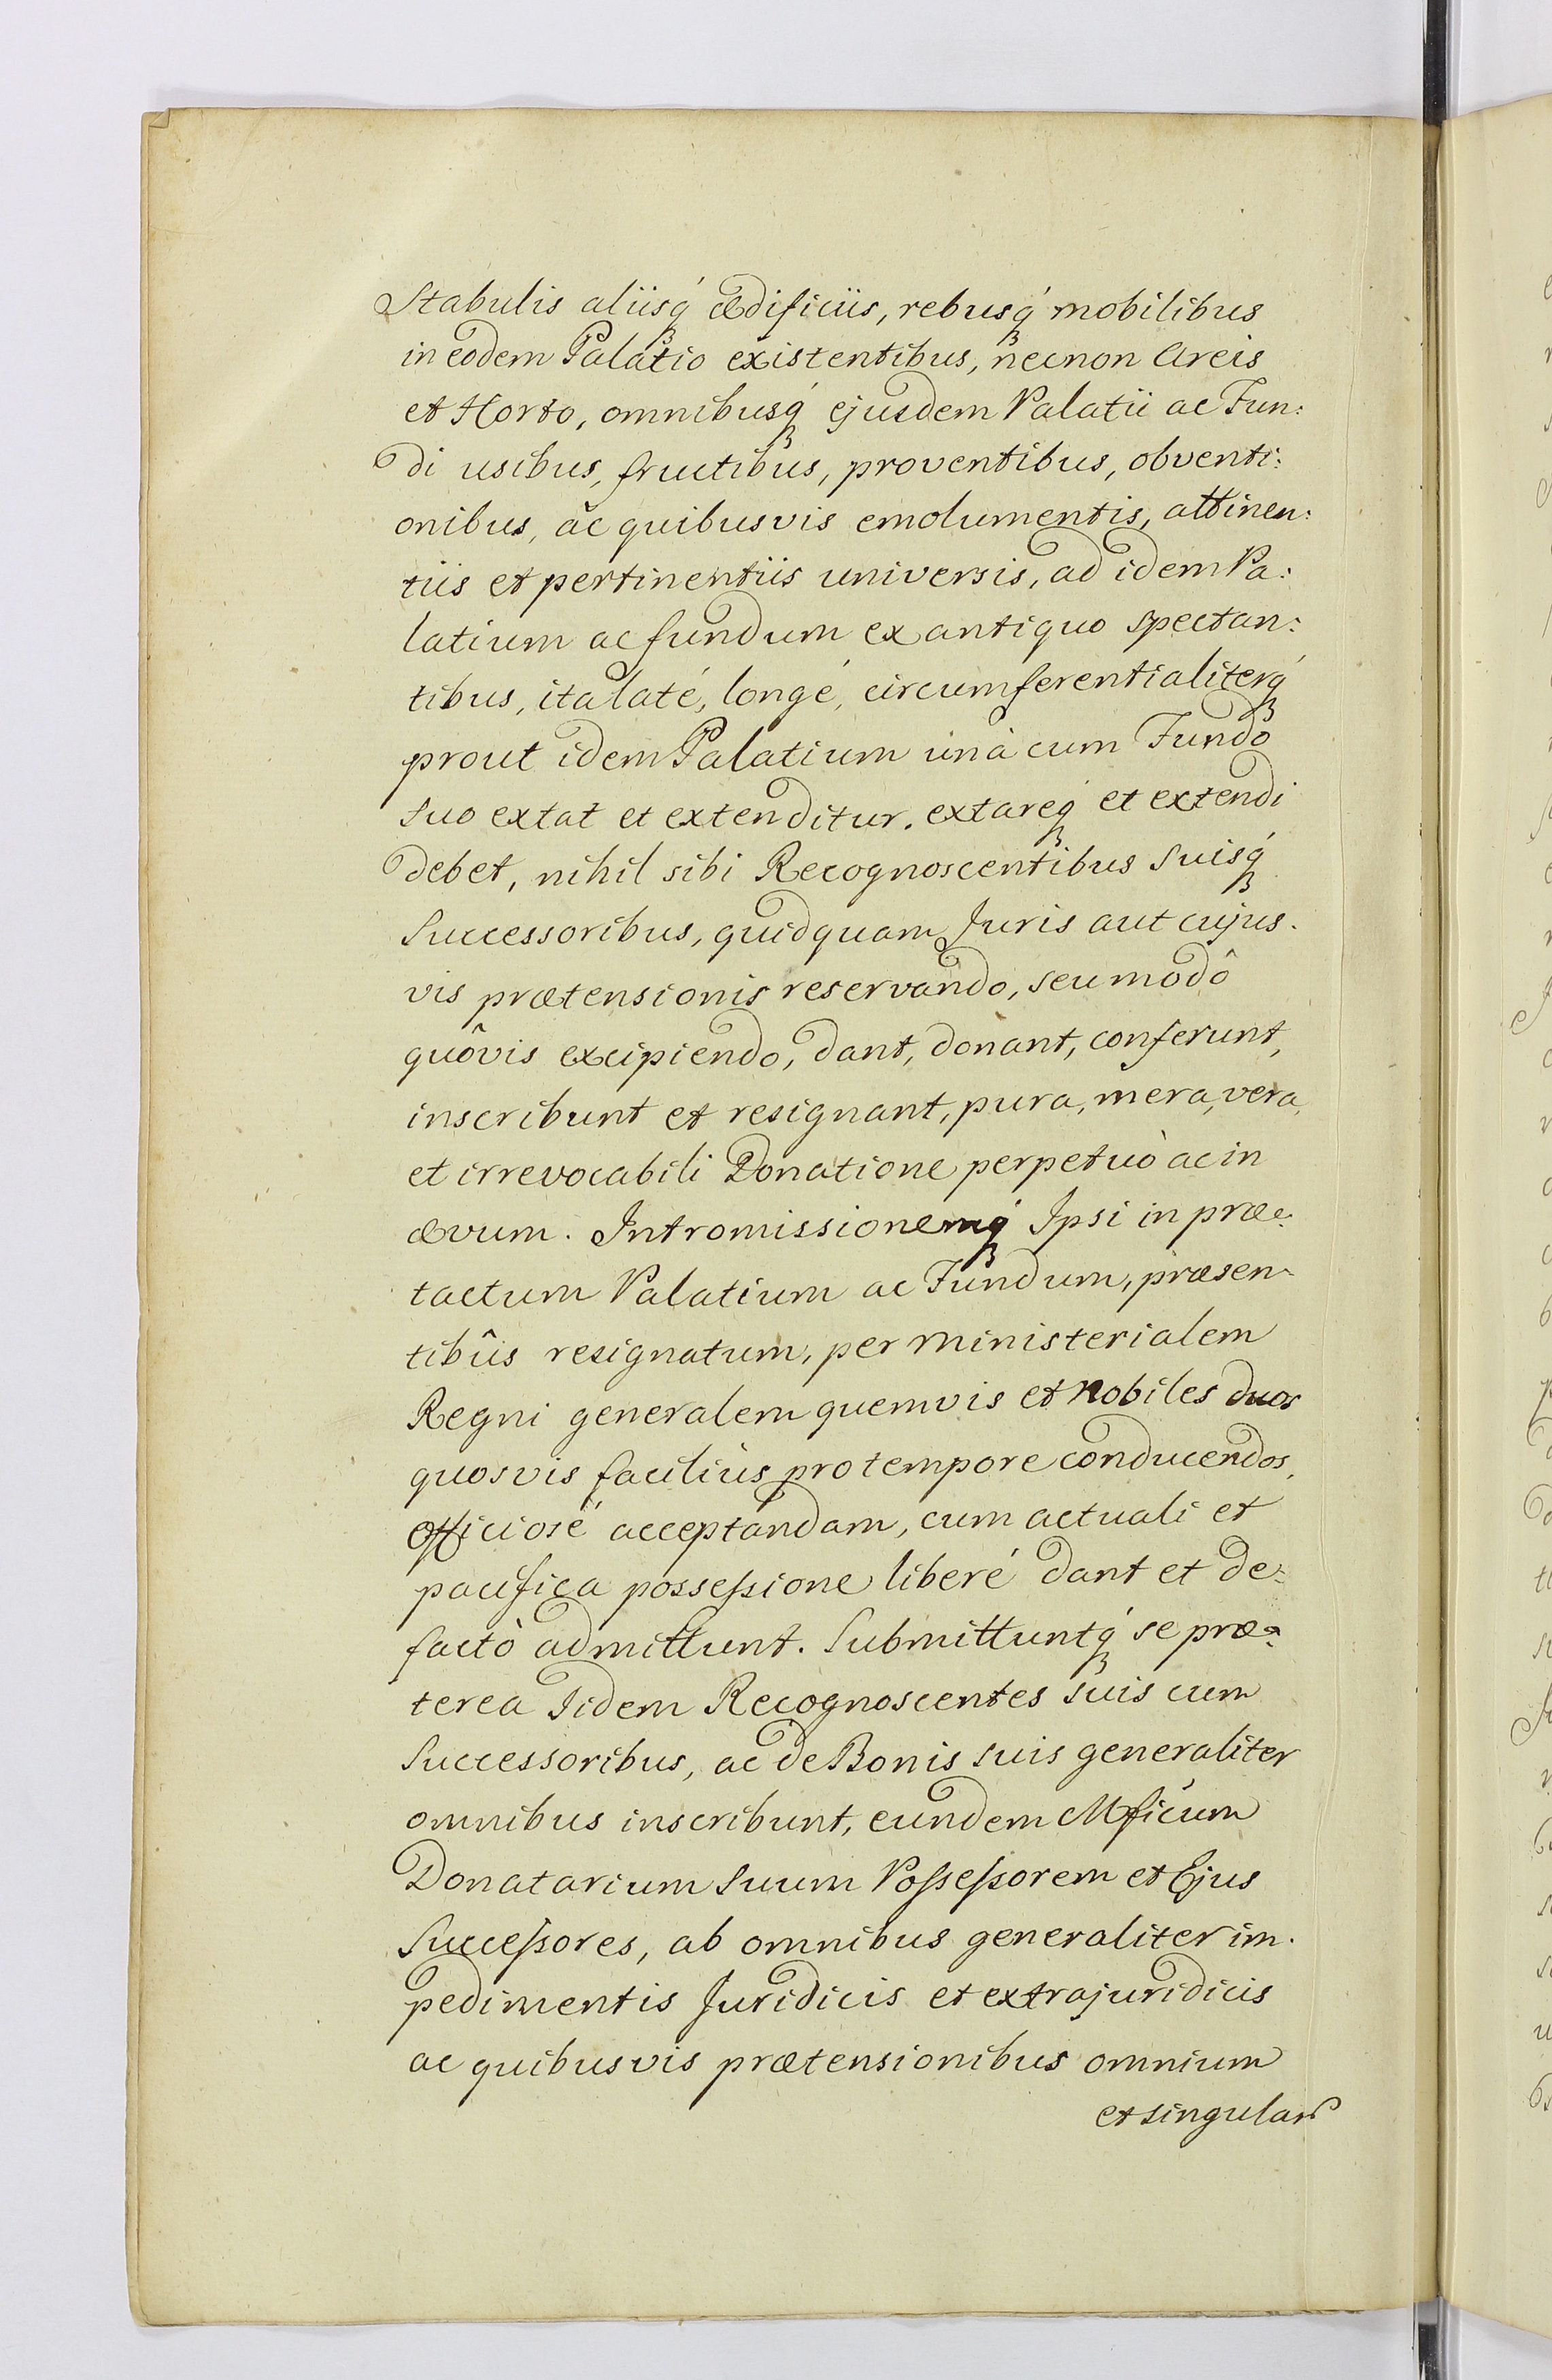 Stabulis aliisq́ ædificiis, rebusq́ mobilibus
in eodem Palatio existentibus, necnon Areis
et Horto, omnibusq́ ejusdem Palatii ac Fun:
di usibus, fructibus, proventibus, obventi:
onibus, ac quibusvis emolumentis, attinen:
tiis et pertinentiis universis, ad idem Pa:
latium ac fundum ex antiquo spectan:
tibus, ita laté, longé, circumferentialiterq́
prout idem Palatium unà cum Fundo
suo extat et extenditur. extareq́ et extendi
debet, nihil sibi Recognoscentibus suisq́
Successoribus, quidquam Juris aut cujus.
vis prætensionis reservando, seu modô
quôvis excipiendo, dant, donant, conferunt,
inscribunt et resignant, pura, mera, vera,
et irrevocabili Donatione perpetuò ac in
ævum. Intromissionemq́ Ipsi in præe:
tactum Palatium ac Fundum, præsen:
tibûs resignatum, per Ministerialem
Regni generalem quemvis et Nobiles duos
quosvis facilius pro tempore conducendos,
officiosé acceptandam, cum actuali et
pacifica possessione liberé dant et de:
factò admittunt. Submittuntq́ se præ:
terea Iidem Recognoscentes suis cum
Successoribus, ac de Bonis suis generaliter
omnibus inscribunt, eundem Mficum
Donatarium suum Possessorem et Ejus
Successores, ab omnibus generaliter im.
pedimentis Juridicis et extrajuridicis
ac quibusvis prætensionibus omnium
et singular